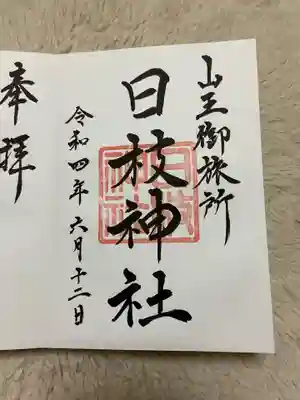 山王御旅所
日枝神社
令和四年六月十二日
奉拝
日枝神社